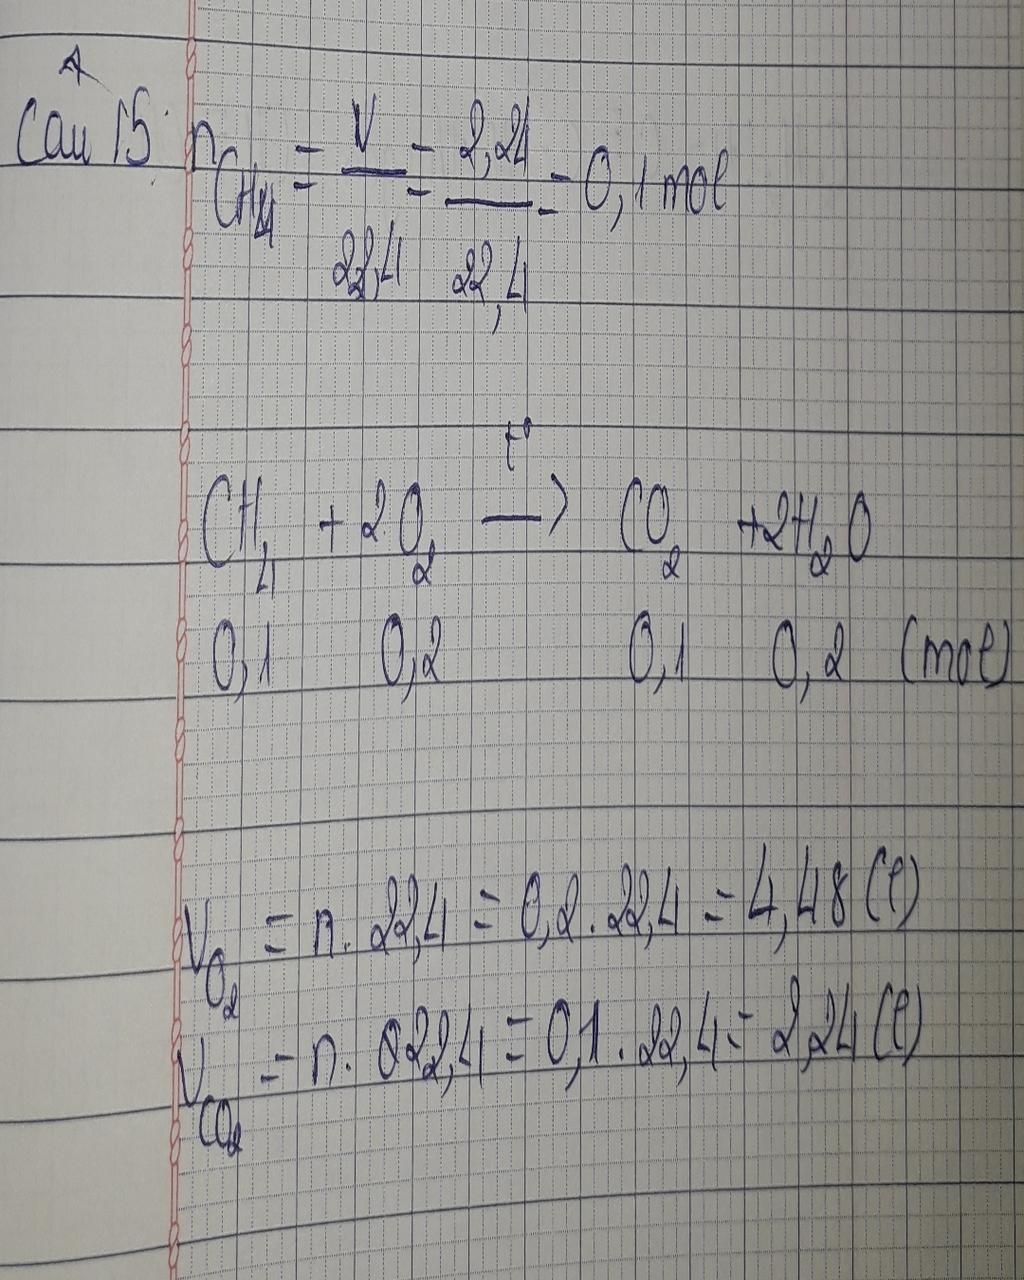 Câu 15: nCH4 = V/22,4 = 2,24/22,4 = 0,1 mol
t°
CH4 + 2O2 → CO2 + 2H2O
0,1 0,2 0,1 0,2 (mol)
VO2 = n. 22,4 = 0,2. 22,4 = 4,48 (l)
VCO2 = n. 022,4 = 0,1. 22,4 = 2,24 (l)